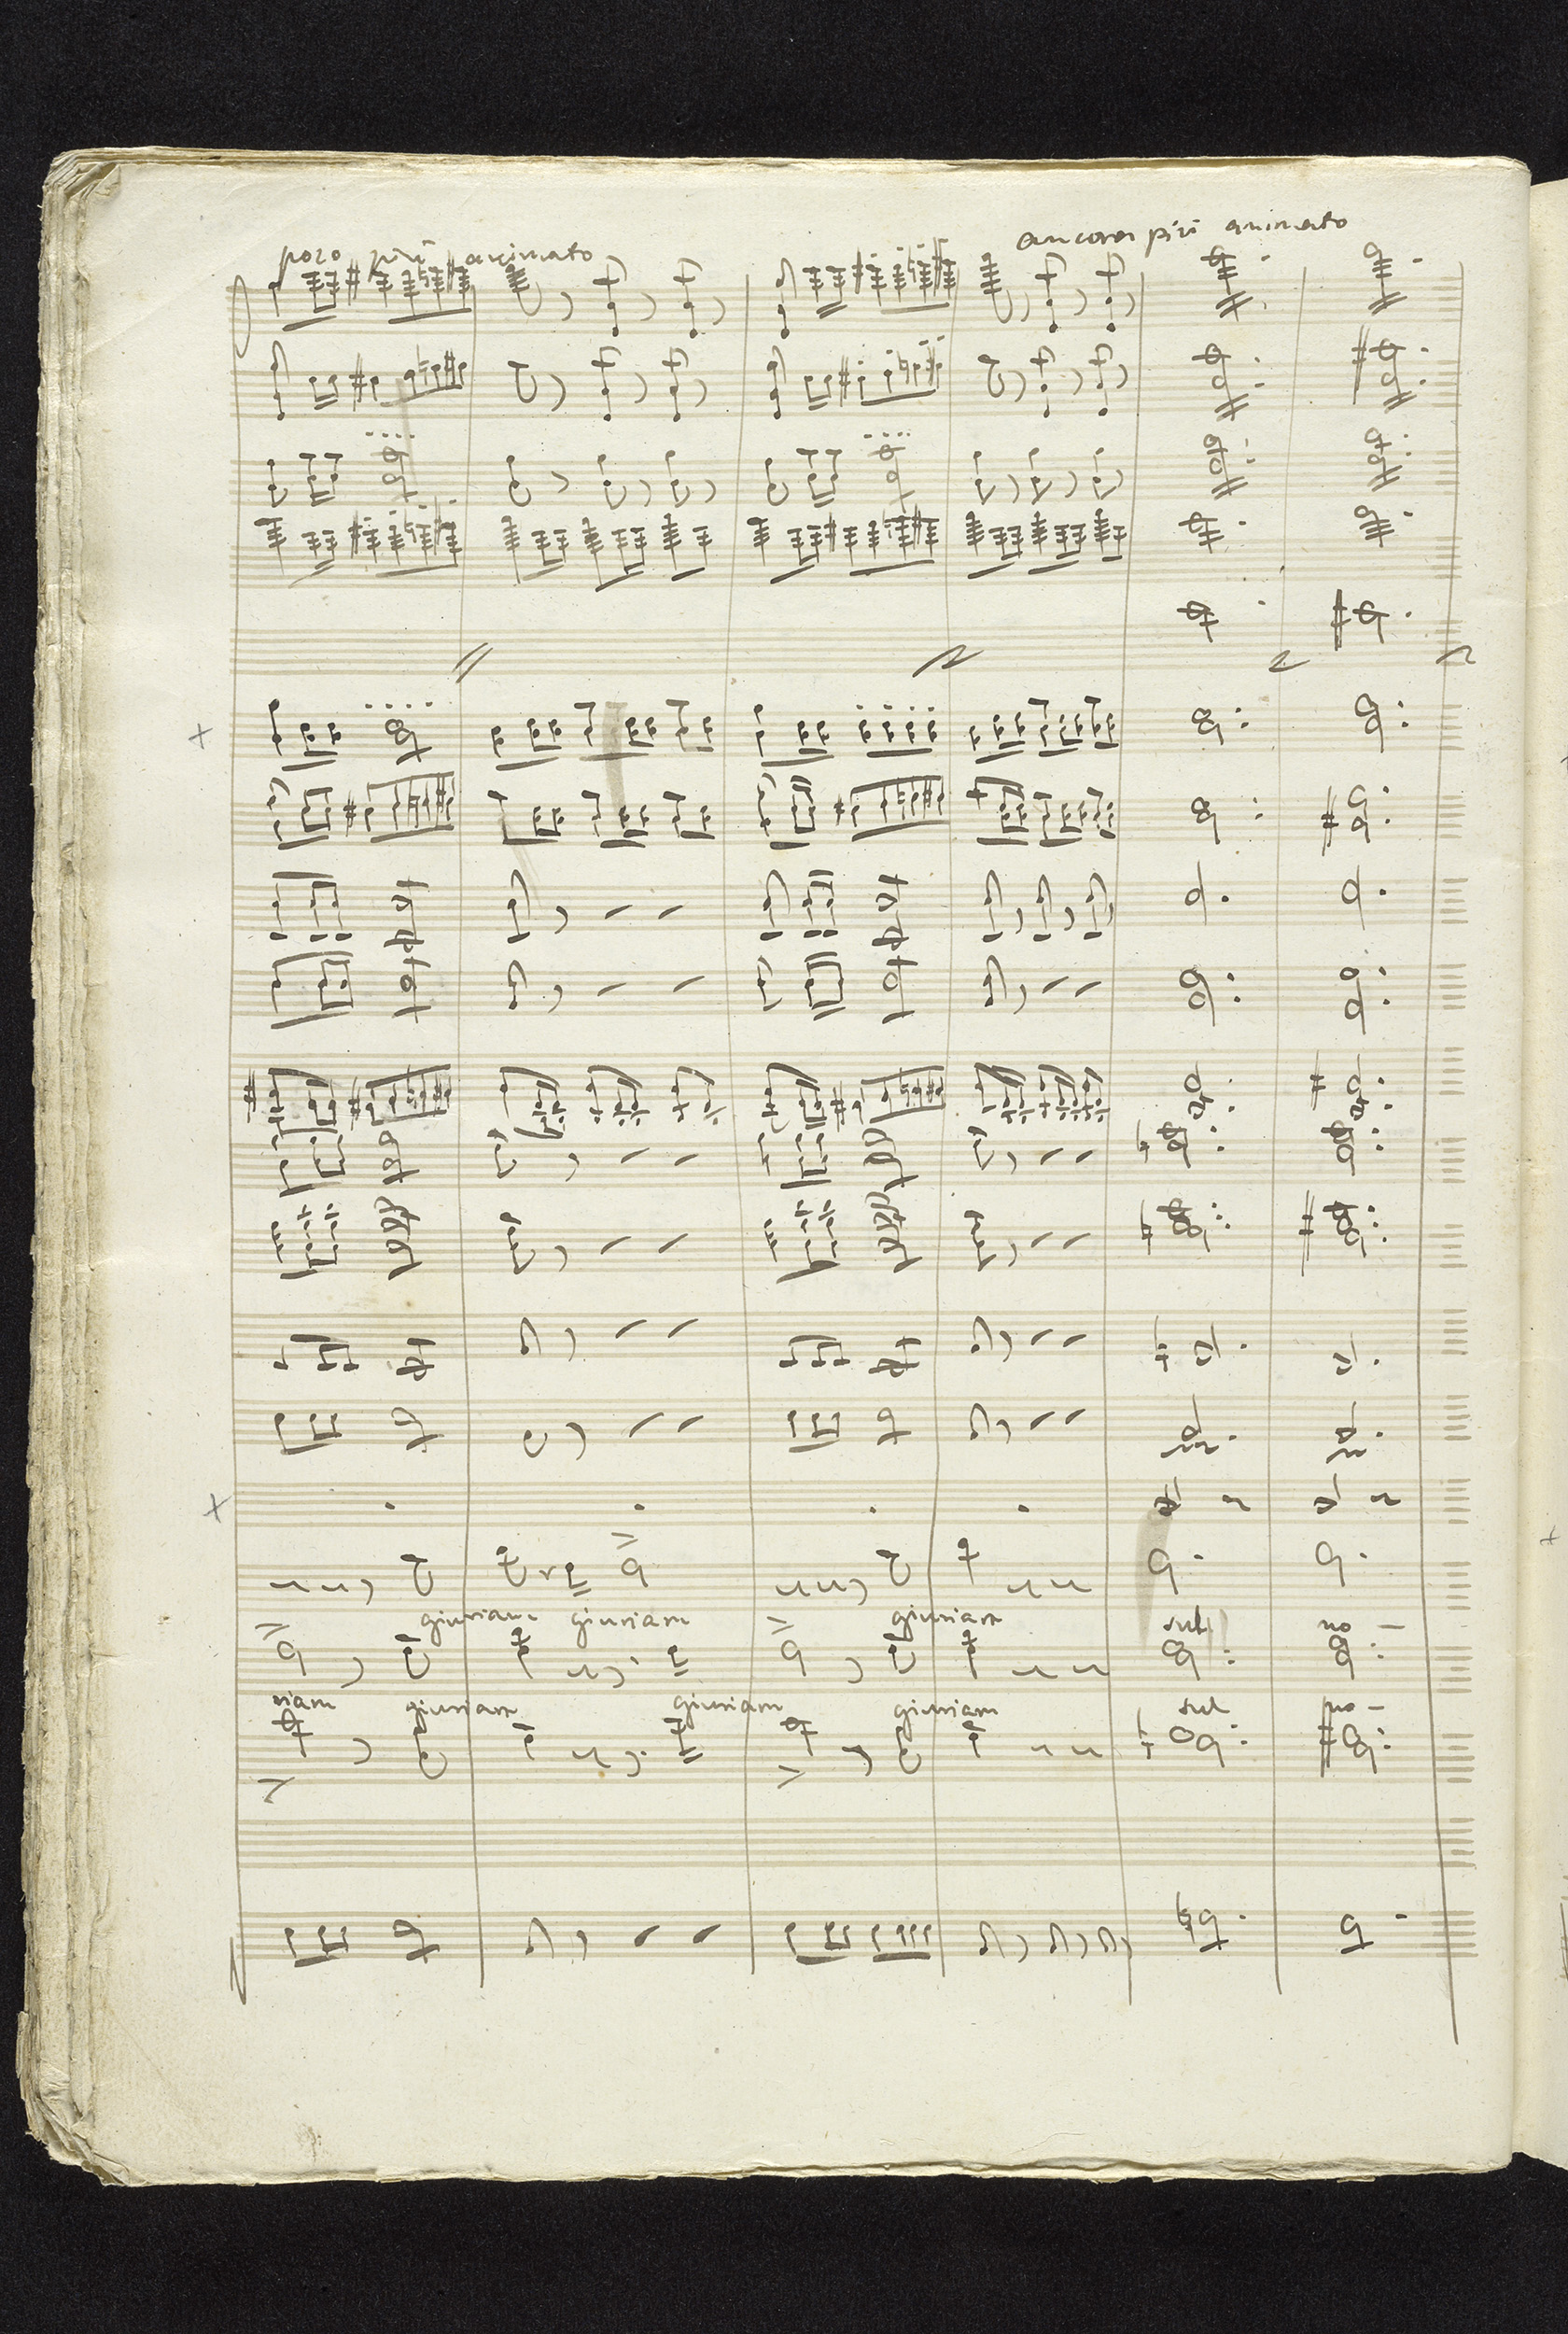 poco più animato
ancora più animato
giuriam giuriam giuriam
sul no -
riam giuriam giuriam giuriam
sul no -